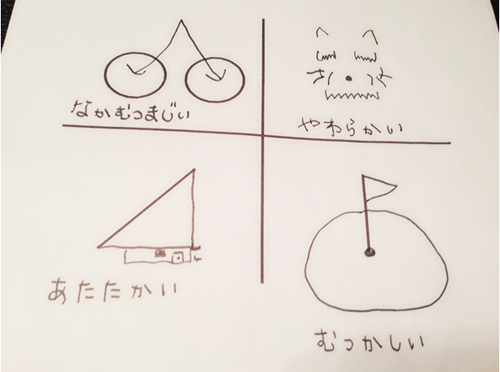 なかむつまじい
やわらかい
あたたかい
むつかしい